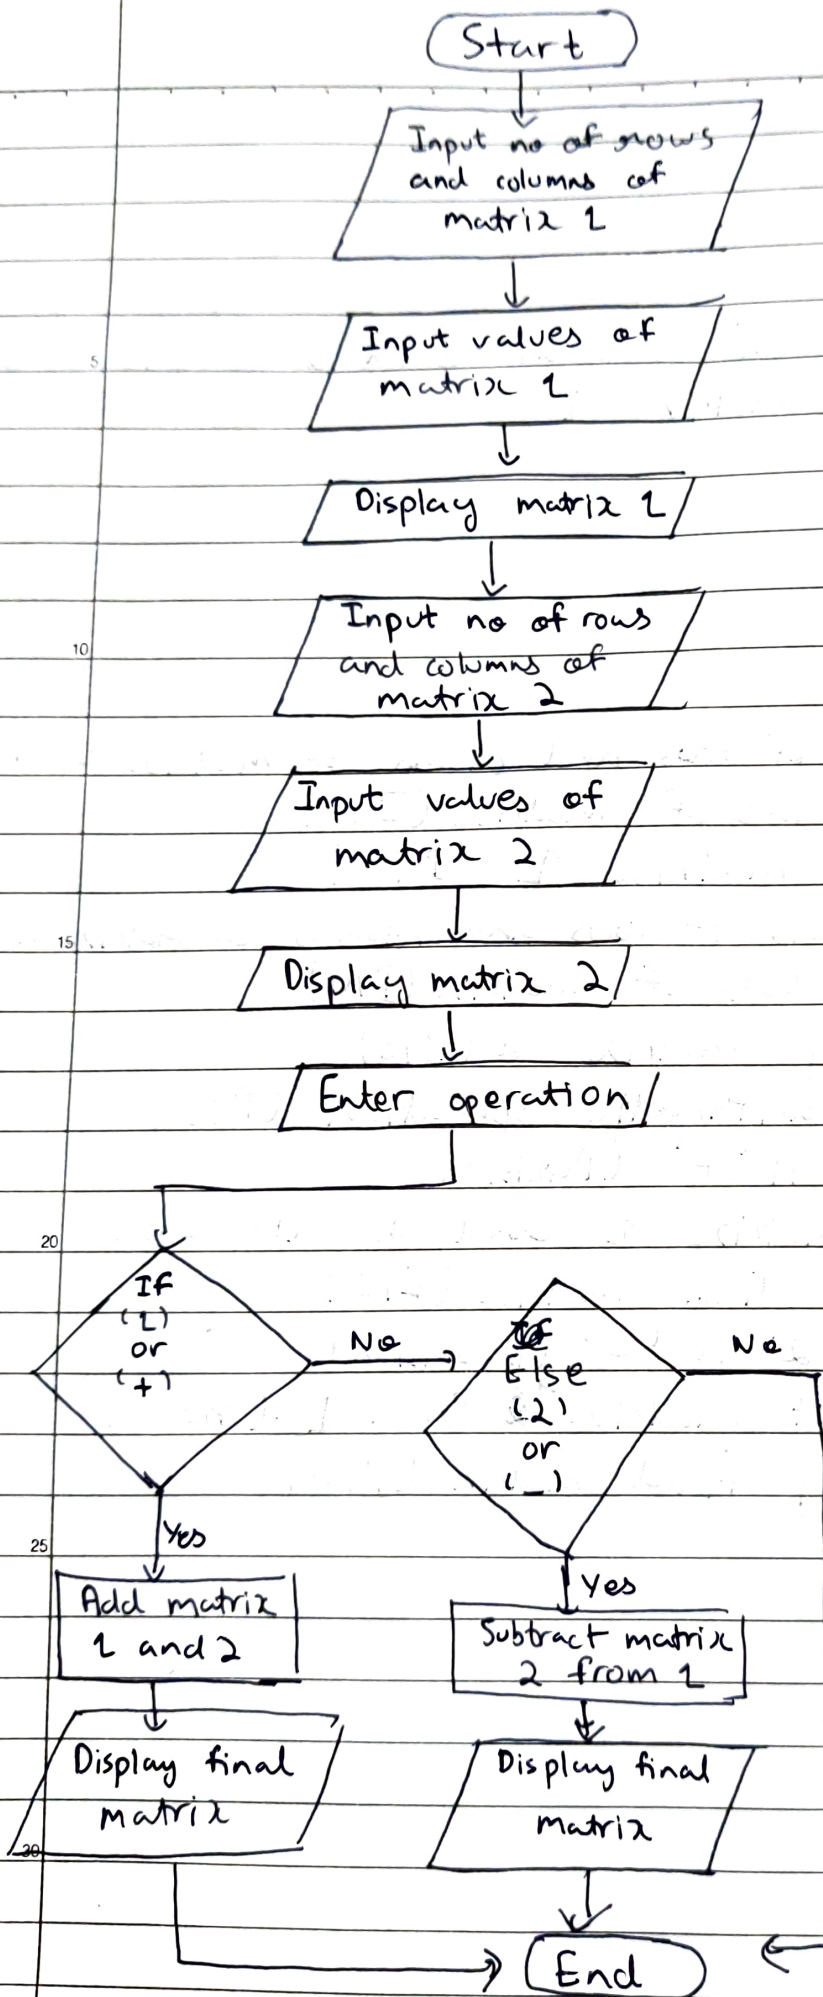 Start
Input no of rows
and columns of
matrix 1
Input values of
5
matrix 1
Display matrix 1
Input no of rows
10
and columns of
matrix 2
Input values of
matrix 2
15
Display matrix 2
Enter operation
20
If
(1)
or
(+)
No
Else
(2)
or
(_)
No
25
Yes
Yes
Add matrix
1 and 2
Subtract matrix
2 from 1
Display final
matrix
Display final
matrix
30
End